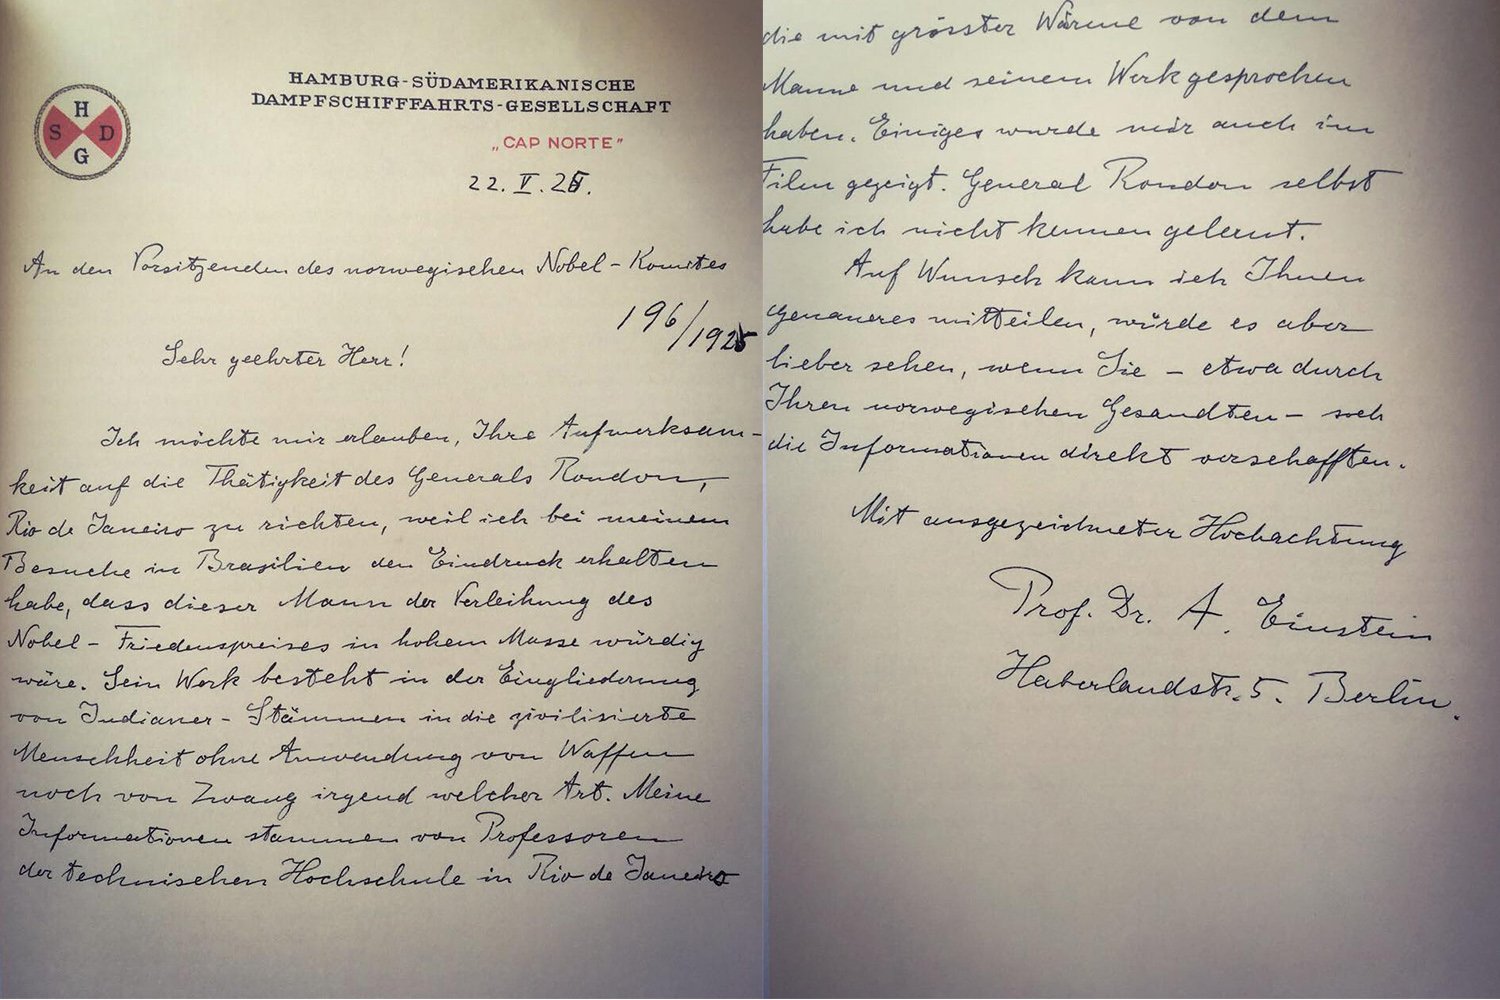 H
S D
G
HAMBURG-SÜDAMERIKANISCHE
DAMPFSCHIFFFAHRTS-GESELLSCHAFT
„CAP NORTE"
22. V. 25.
An den Vorsitzenden des norwegischen Nobel-Komites
196/1925
Sehr geehrter Herr!
Ich möchte mir erlauben, Ihre Aufmerksam-
keit auf die Thätigkeit des Generals Rondon,
Rio de Janeiro zu richten, weil ich bei meinem
Besuche in Brasilien den Eindruck erhalten
habe, dass dieser Mann der Verleihung des
Nobel-Friedenspreises in hohem Masse würdig
wäre. Sein Werk besteht in der Eingliederung
von Indianer-Stämmen in die zivilisierte
Menschheit ohne Anwendung von Waffen
noch von Zwang irgend welcher Art. Meine
Informationen stammen von Professoren
der technischen Hochschule in Rio de Janeiro
die mit grösster Wärme von dem
Manne und seinem Werk gesprochen
haben. Einiges wurde mir auch im
Film gezeigt. General Rondon selbst
habe ich nicht kennen gelernt.
Auf Wunsch kann ich Ihnen
genaueres mitteilen, würde es aber
lieber sehen, wenn Sie – etwa durch
Ihren norwegischen Gesandten – sich
die Informationen direkt verschafften.
Mit ausgezeichneter Hochachtung
Prof. Dr. A. Einstein
Haberlandstr. 5. Berlin.